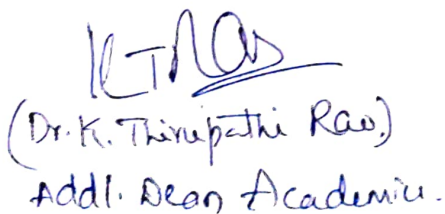 KTRao
(Dr. K. Thirupathi Rao)
Addl. Dean Academics.